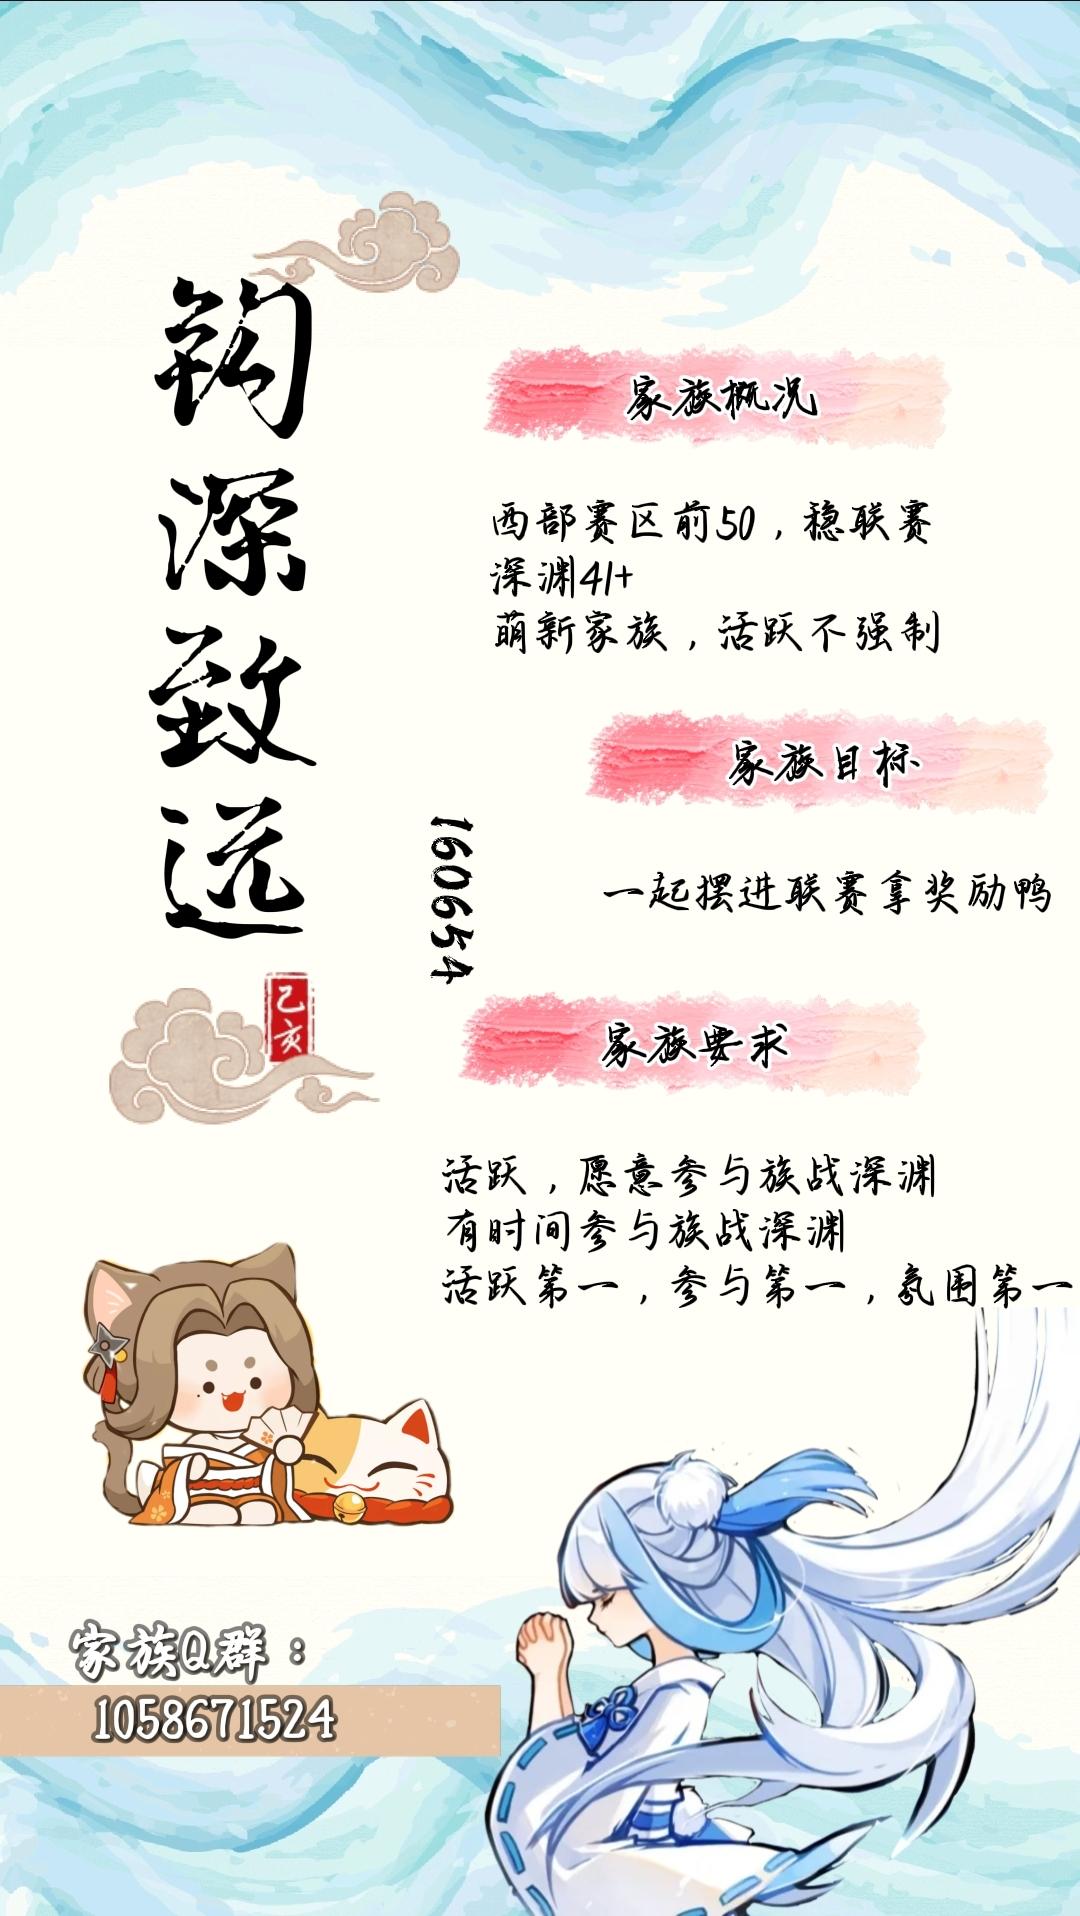 钩深致远
己亥
160654
家族概况
西部赛区前50，稳联赛
深渊41+
萌新家族，活跃不强制
家族目标
一起摆进联赛拿奖励鸭
家族要求
活跃，愿意参与族战深渊
有时间参与族战深渊
活跃第一，参与第一，氛围第一
家族Q群：
1058671524